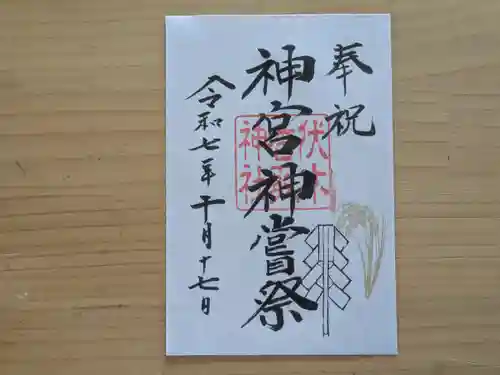 奉祝
神宮神嘗祭
令和七年十月十七日
伏木
神社